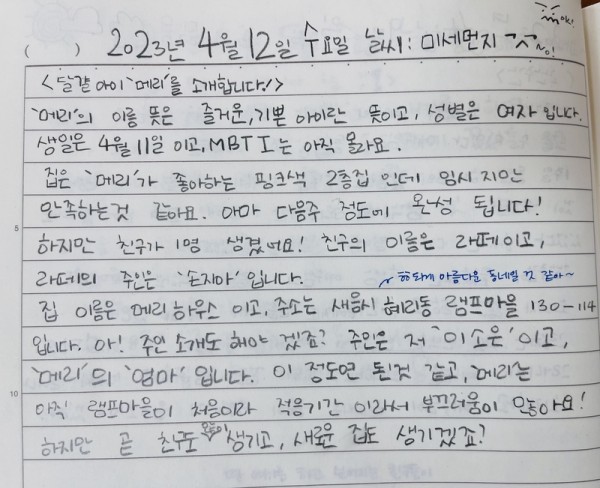 ( ) 2023년 4월 12일 수요일 날씨: 미세먼지
<달걀 아이 '메리'를 소개합니다!>
'메리'의 이름 뜻은 즐거운, 기쁜 아이란 뜻이고, 성별은 여자입니다.
생일은 4월 11일 이고, MBTI는 아직 몰라요.
집은 '메리'가 좋아하는 핑크색 2층집 인데 임시 지만
만족하는것 같아요. 아마 다음주 정도에 완성 됩니다!
5
하지만 친구가 1명 생겼어요! 친구의 이름은 라떼이고,
라떼의 주인은 '손지아' 입니다.
되게 아름다운 동네일 것 같아~
집 이름은 메리 하우스 이고, 주소는 새움시 혜리동 램프마을 130-114
입니다. 아! 주인 소개도 해야 겠죠? 주인은 저 '이소은' 이고,
'메리'의 '엄마' 입니다. 이 정도면 된것 같고, '메리는
10
아직 램프마을이 처음이라 적응기간 이라서 부끄러움이 많아요!
하지만 곧 친구도 많이 생기고, 새로운 집도 생기겠죠?